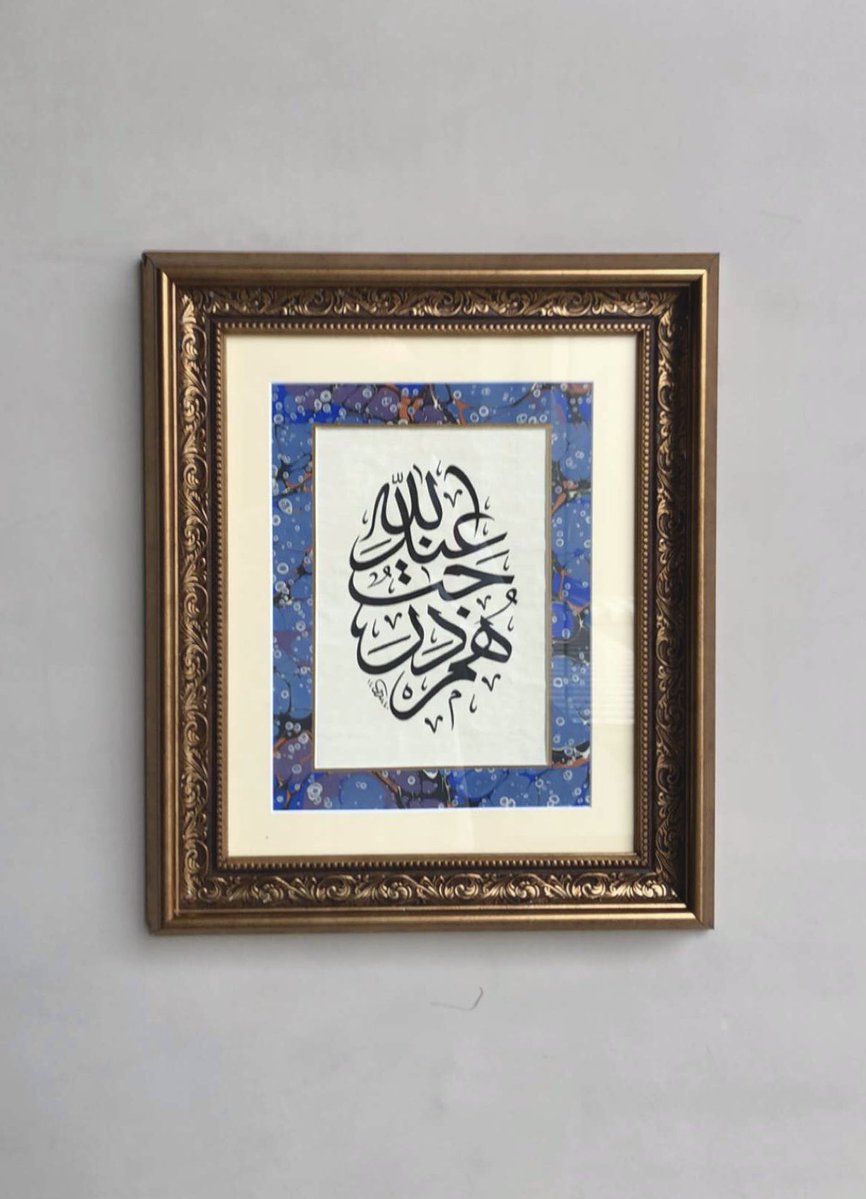 هُم دَرَجَٰتٌ عِندَ اللّٰه